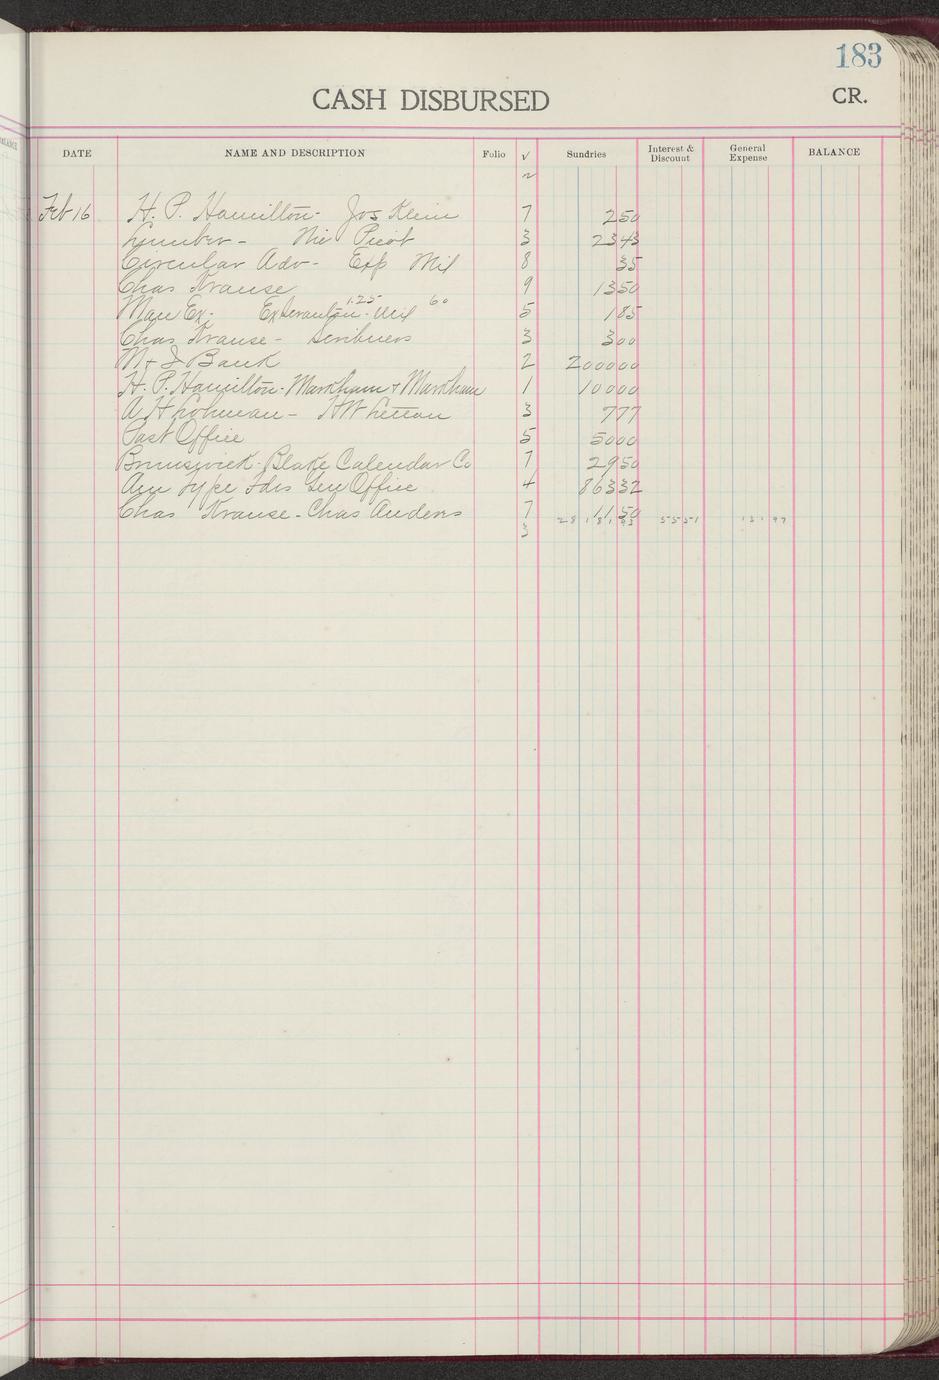 183
CASH DISBURSED CR.
DATE NAME AND DESCRIPTION Folio √ Sundries Interest & Discount General Expense BALANCE
Feb 16 H. P. Hamilton - Jos Klein 7 250
Lumber - Nic Picot 3 2343
Circular Adv - Exp Mil 8 35
Chas Krause 9 1350
1.25 60
Man Ex - Ex Scranton - Mil 5 185
Chas Krause - Scribners 3 300
M & I Bank 2 200000
H. P. Hamilton - Markham & Markham 1 10000
A H Lohman - H W 3 777
Post Office 5 5000
Brunswick - Blake Calendar Co 7 2950
Am Type Fdrs Gen Office 4 86332
Chas Krause - Chas Anders 7 1150
3 5551